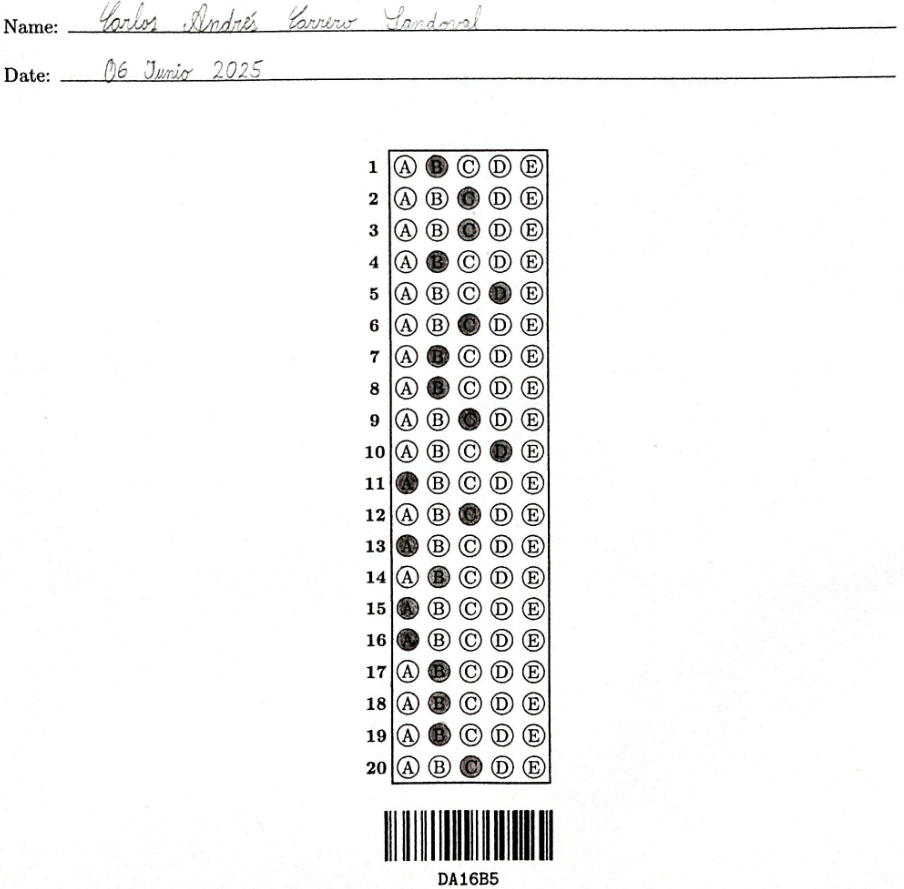 Name: Carlos Andrés Carrero Sandoval
Date: 06 Junio 2025
1 A B C D E
2 A B C D E
3 A B C D E
4 A B C D E
5 A B C D E
6 A B C D E
7 A B C D E
8 A B C D E
9 A B C D E
10 A B C D E
11 A B C D E
12 A B C D E
13 A B C D E
14 A B C D E
15 A B C D E
16 A B C D E
17 A B C D E
18 A B C D E
19 A B C D E
20 A B C D E
DA16B5